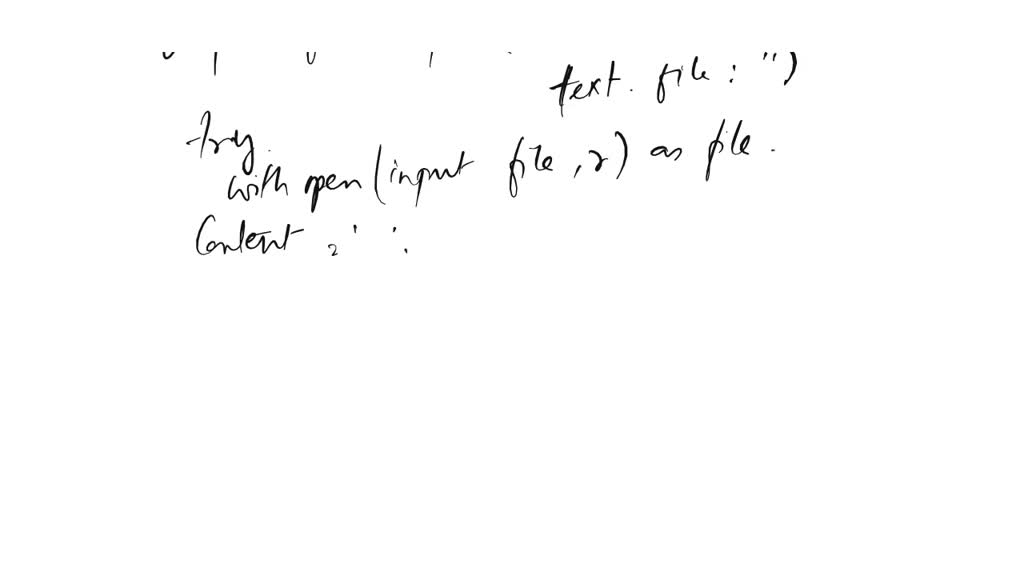 text. file : ")
try.
with open (input file , r) as file .
Content = ' ' .